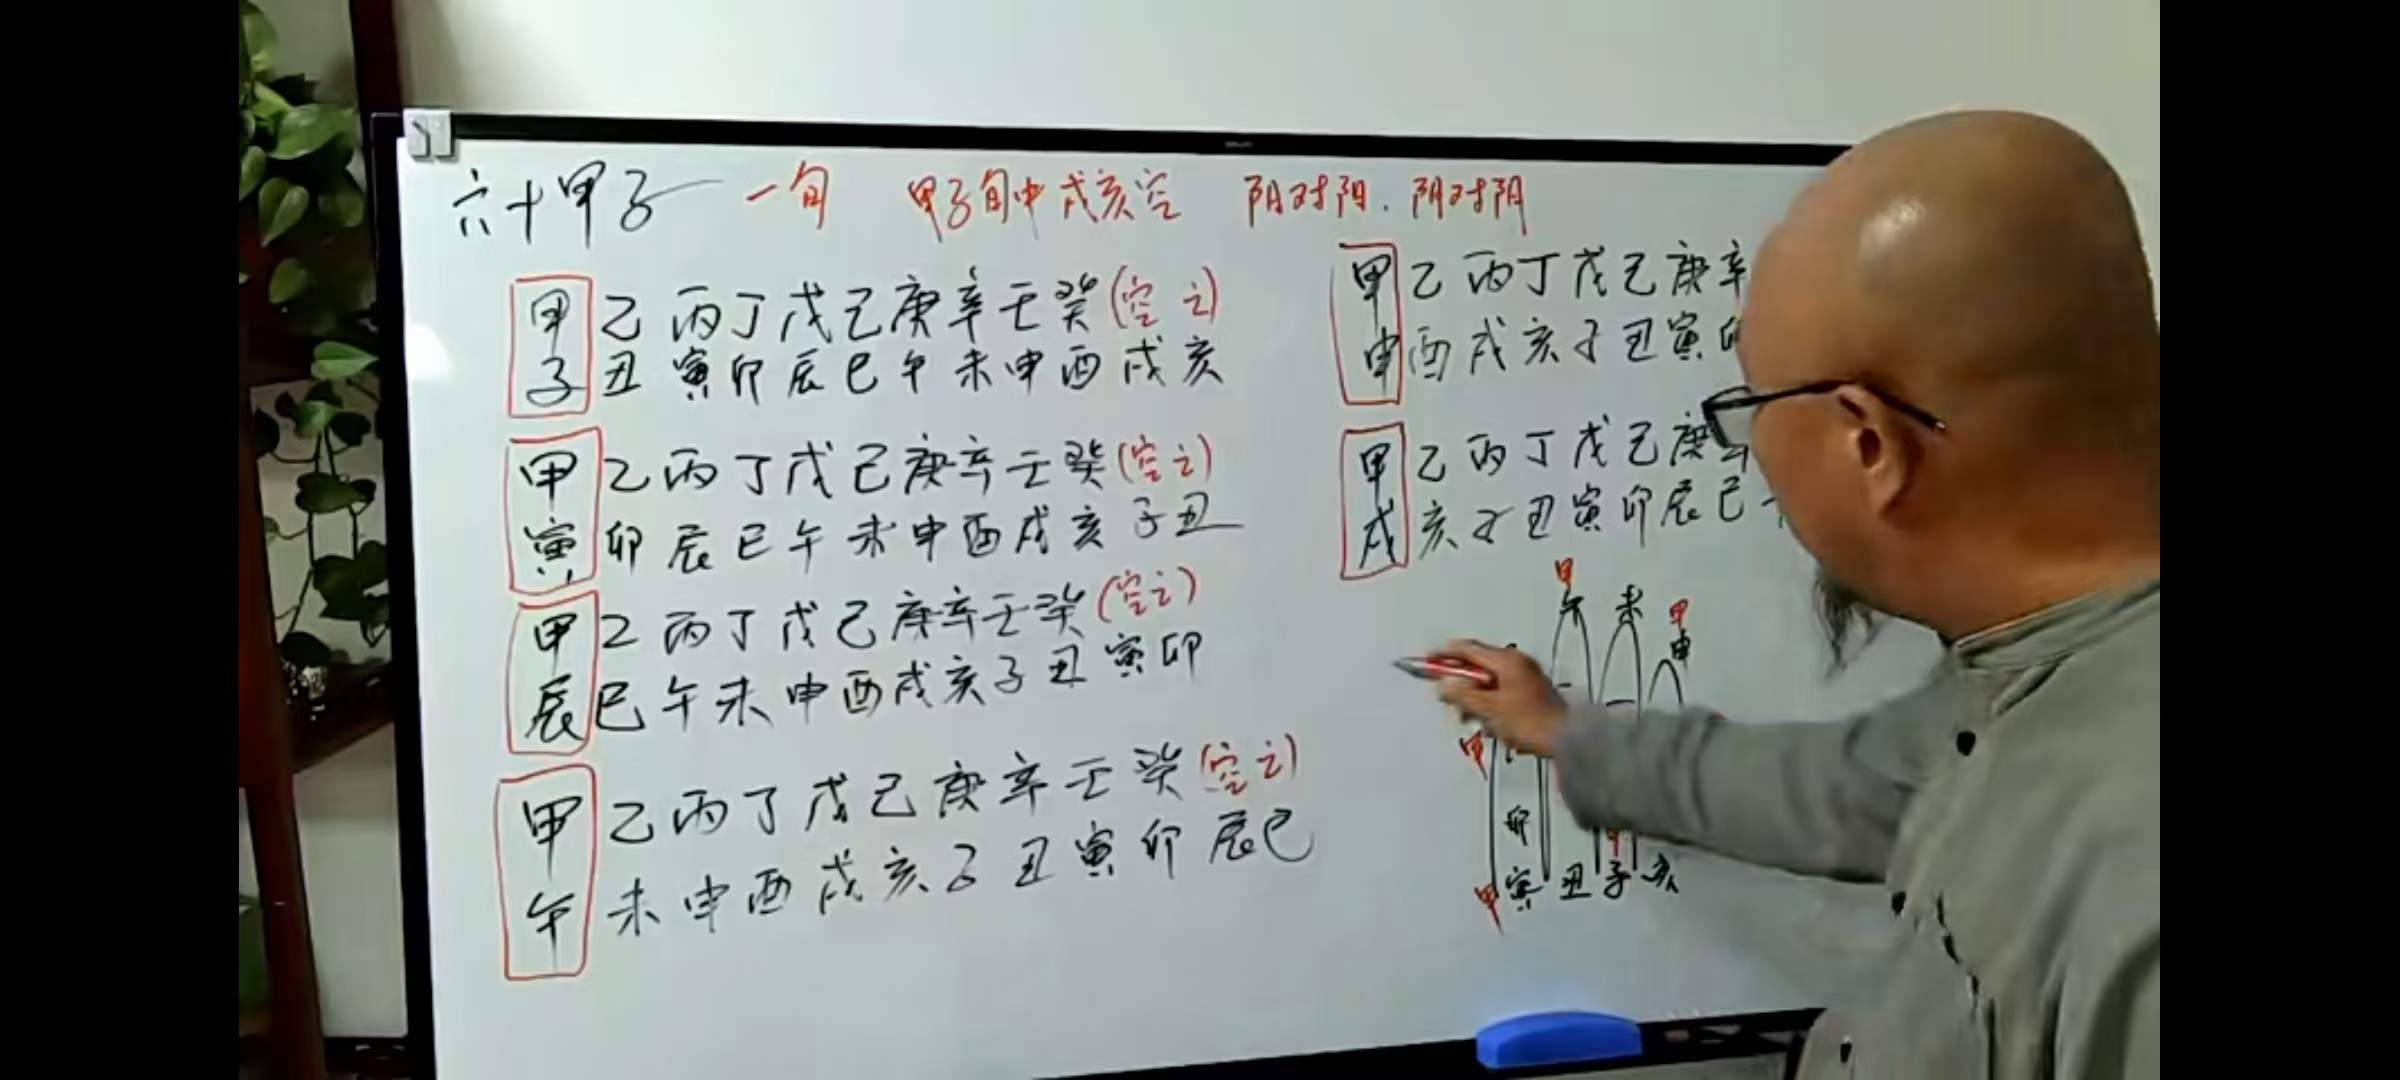 六十甲子 一旬 甲子旬中戌亥空 阳对阳.阴对阴
甲乙丙丁戊己庚辛壬癸(空亡)
子丑寅卯辰巳午未申酉戌亥
甲乙丙丁戊己庚辛壬癸(空亡)
寅卯辰巳午未申酉戌亥子丑
甲乙丙丁戊己庚辛壬癸(空亡)
辰巳午未申酉戌亥子丑寅卯
甲乙丙丁戊己庚辛壬癸(空亡)
午未申酉戌亥子丑寅卯辰巳
甲乙丙丁戊己庚辛
申酉戌亥子丑寅卯
甲乙丙丁戊己庚
戌亥子丑寅卯辰巳
甲 甲
午 未 申
甲
卯
甲 寅 丑 子 亥